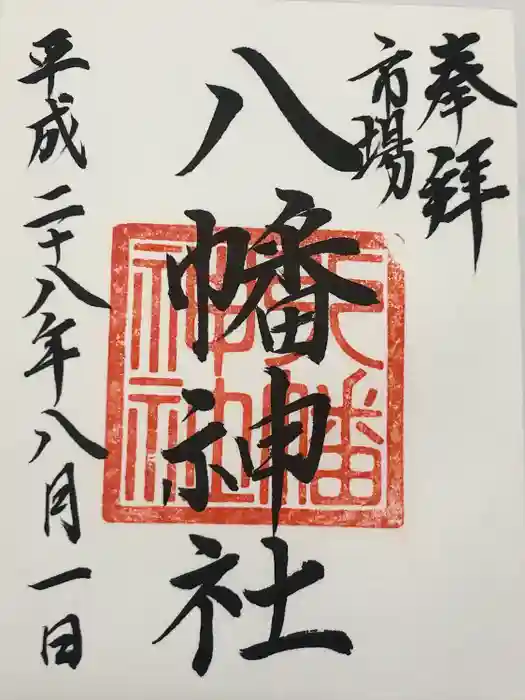 奉拝
市場
八幡神社
八幡
神社
平成二十八年八月一日